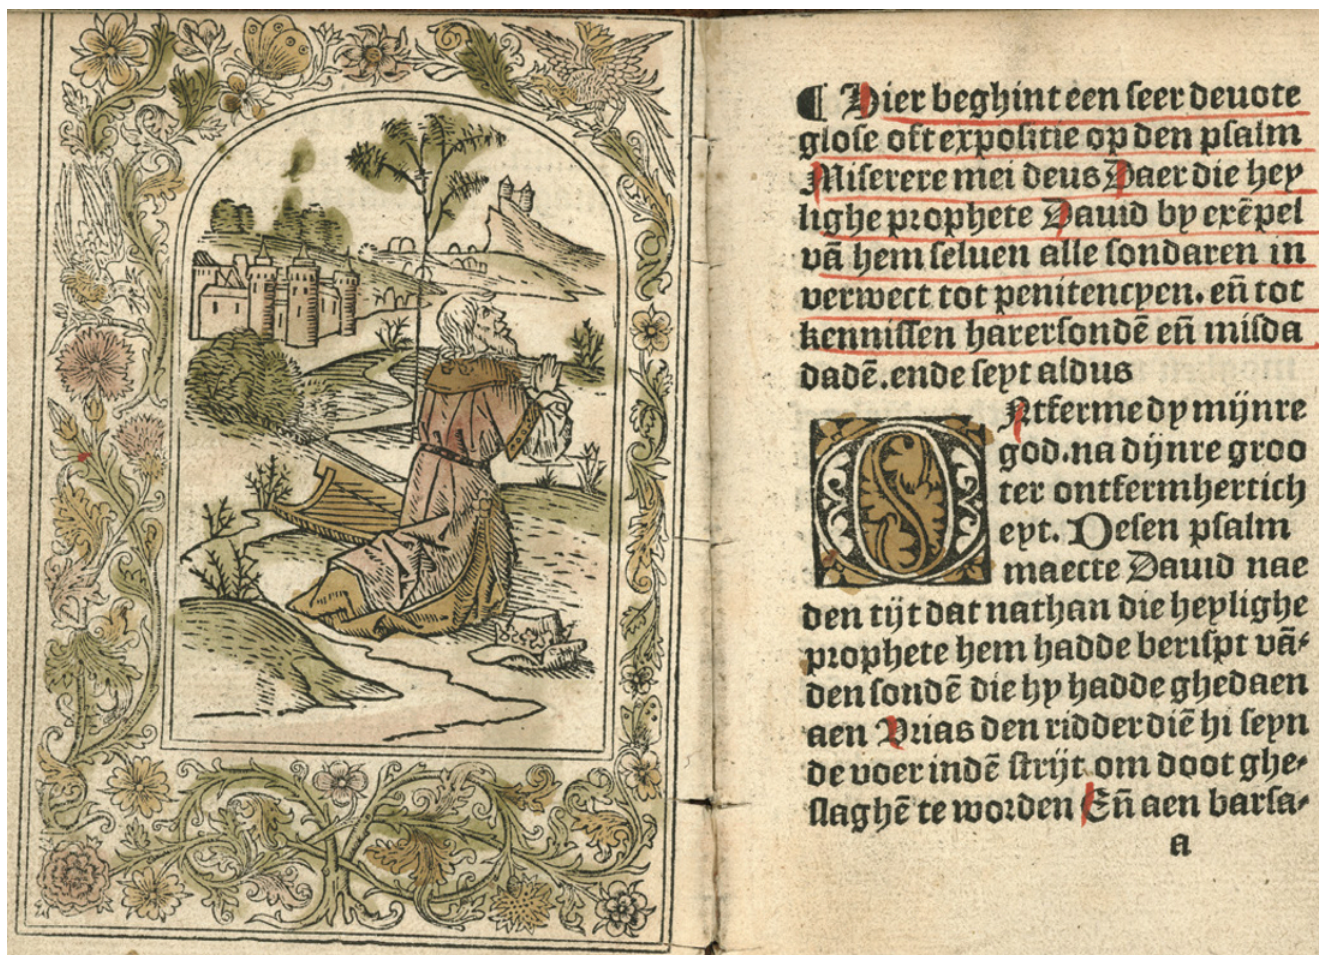 ¶ Hier beghint een seer deuote
glose oft expositie op den psalm
Miserere mei deus Daer die hey
lighe prophete Dauid by exẽpel
vã hem seluen alle sondaren in
verwect tot penitencyen. en̄ tot
kennissen harer sondẽ en̄ misda
dadẽ. ende seyt aldus
ONtferme dy mijnre
god. na dijnre groo
ter ontfermhertich
eyt. Desen psalm
maecte Dauid nae
den tijt dat nathan die heylighe
prophete hem hadde berispt vã⸗
den sondẽ die hy hadde ghedaen
aen Vrias den ridder diẽ hi seyn
de voer indẽ strijt om doot ghe⸗
slaghẽ te worden En̄ aen barsa⸗
a